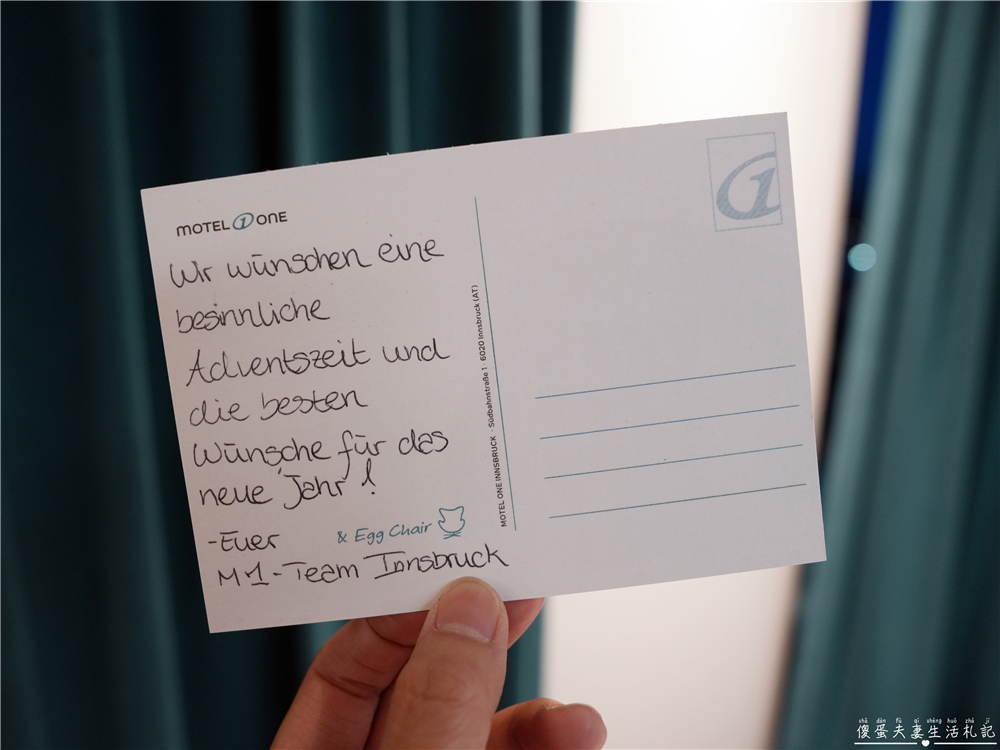 MOTEL ONE
Wir wünschen eine
besinnliche
Adventszeit und
die besten
Wünsche für das
neue Jahr!
-Euer
& Egg Chair
M1-Team Innsbruck
MOTEL ONE INNSBRUCK · Südbahnstraße 1 · 6020 Innsbruck (AT)
1
shǎ dàn fū qī shēng huó zhá jì
傻蛋夫妻生活札記